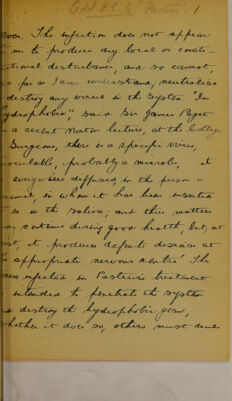 Add P.S. to "Pasteur" 1
The infection does not appear
me to produce any local or consti-
tutional disturbance, and so cannot,
so far as I can understand, neutralise
destroy any virus in the system. "In
hydrophobia," said Sir James Paget
in a recent Morton lecture, at the College
Surgeons, there is a specific virus,
inoculable, probably a microbe, it
everywhere diffused in the person or
animal, in whom it has been inserted
it is in the saliva; and this matter
may continue during good health, but, at
last, it produces definite disease at
appropriate nervous centre. The
infected in Pasteur's treatment
intended to penetrate the system
destroy the hydrophobic germ,
whether it does so, others must decide